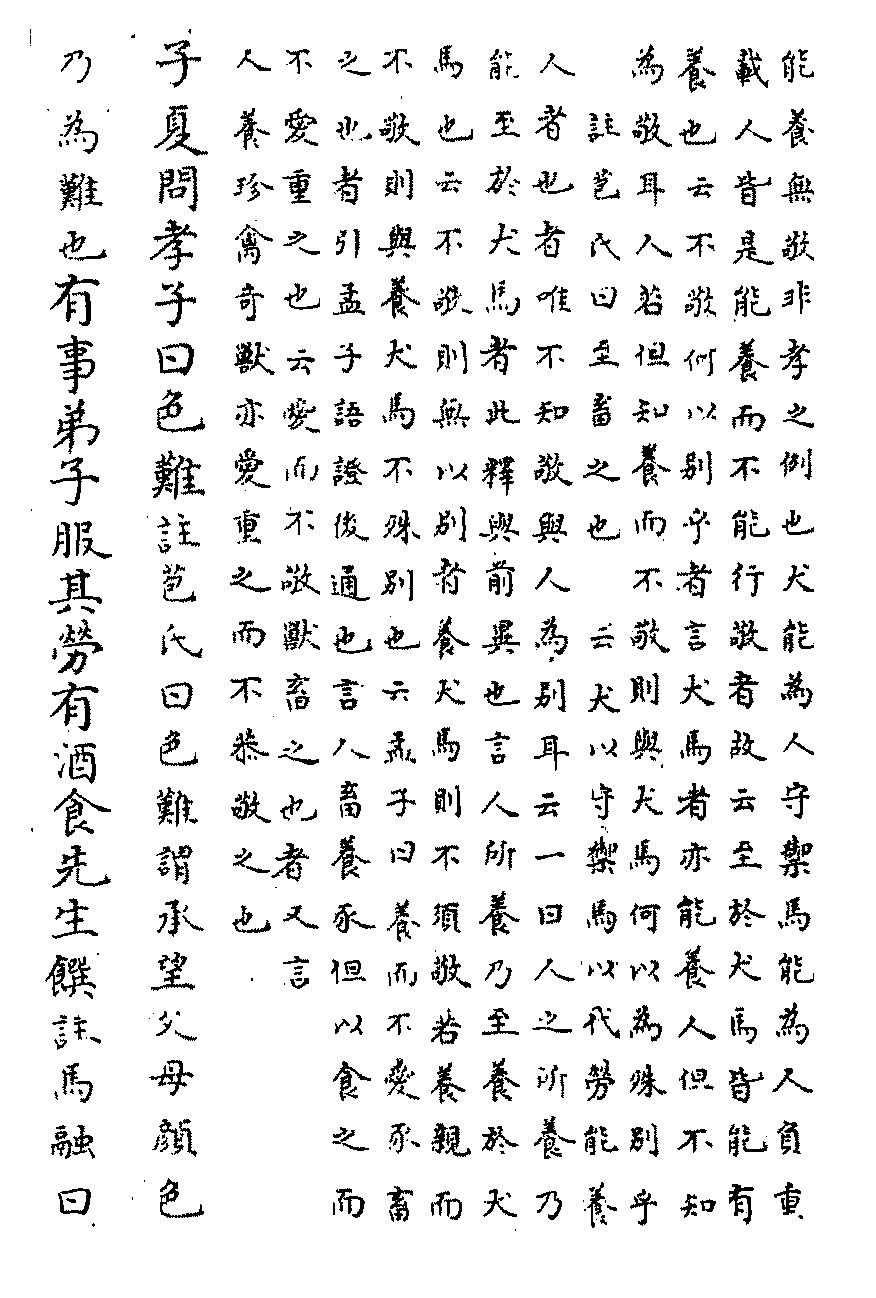 能養無敬非孝之例也犬能為人守禦馬能為人負重
載人皆是能養而不能行敬者故云至於犬馬皆能有
養也云不敬何以別乎者言犬馬者亦能養人但不知
為敬耳人若但知養而不敬則與犬馬何以為殊別乎
註苞氏曰至畜之也　云犬以守禦馬以代勞能養
人者也者唯不知敬與人為別耳云一曰人之所養乃
能至於犬馬者此釋與前異也言人所養乃至養於犬
馬也云不敬則無以別者養犬馬則不須敬若養親而
不敬則與養犬馬不殊別也云孟子曰養而不愛豕畜
之也者引孟子語證後通也言人畜養豕但以食之而
不愛重之也云愛而不敬獸畜之也者又言
人養珍禽奇獸亦愛重之而不恭敬之也
子夏問孝子曰色難註苞氏曰色難謂承望父母顏色
乃為難也有事弟子服其勞有酒食先生饌註馬融曰